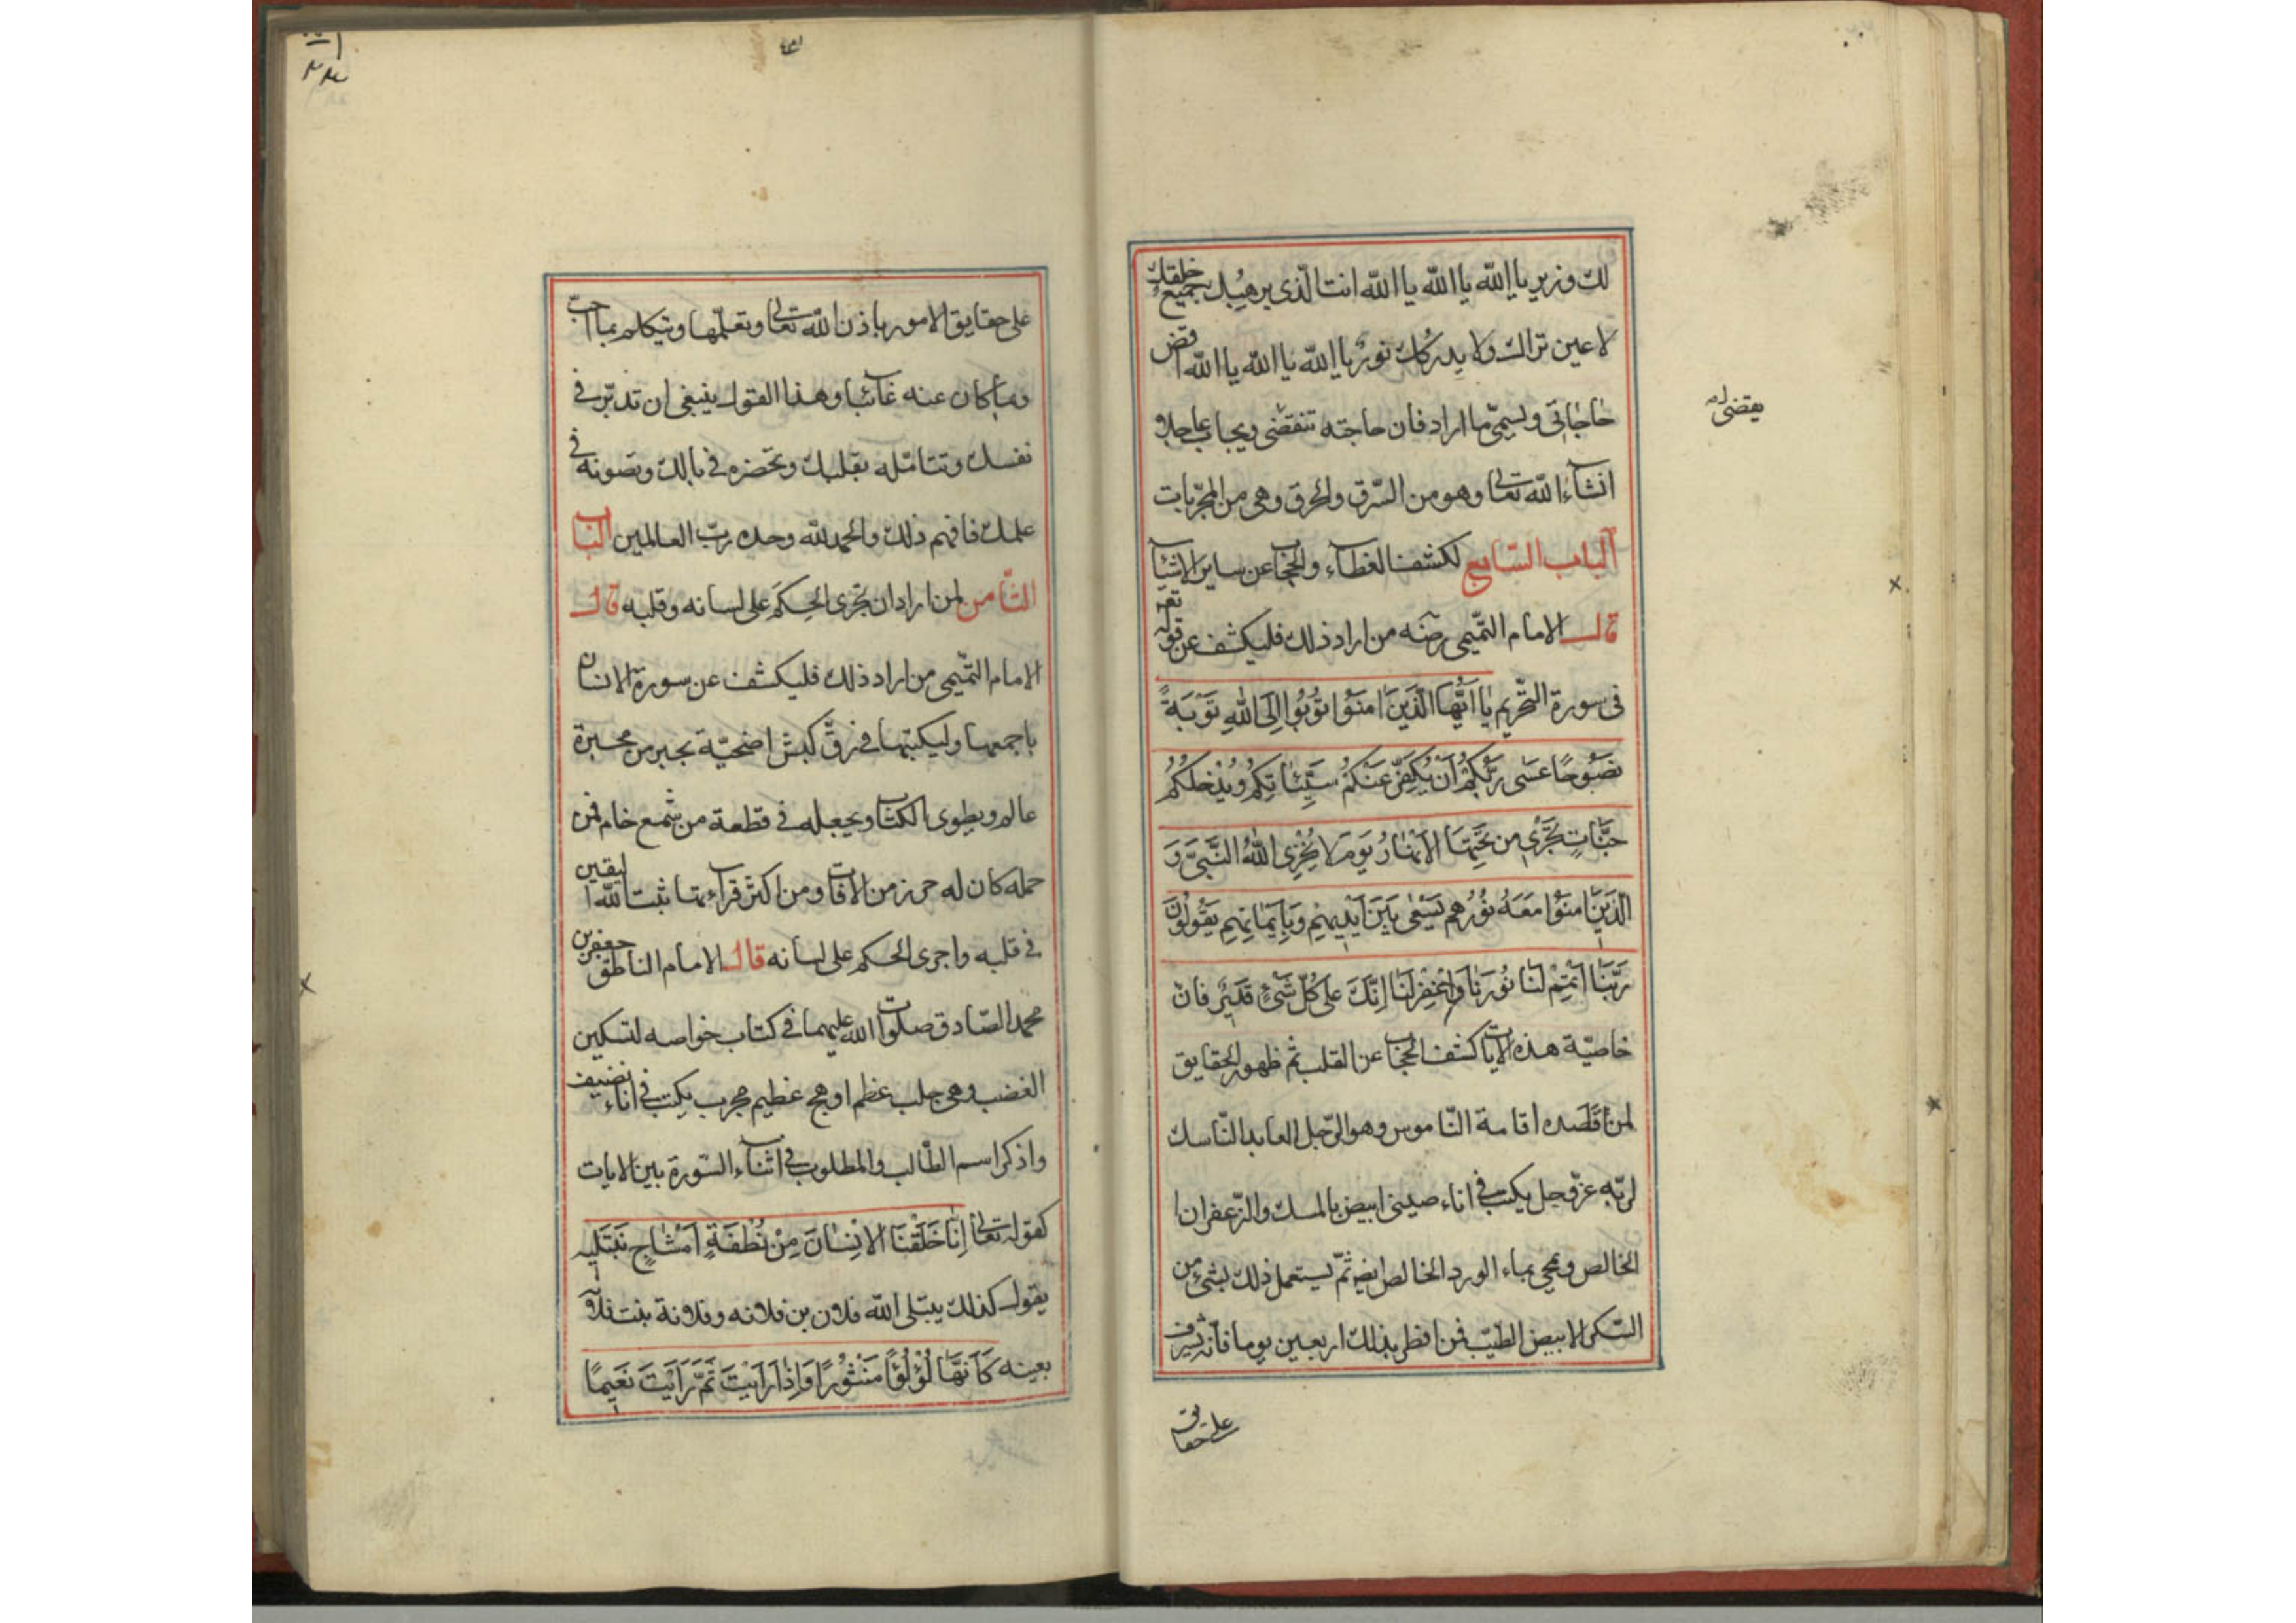 لك وزير يا الله يا الله يا الله انت الذى يرهبك جميع خلقك
لا عين تراك ولا يدركك نور يا الله يا الله يا الله اقض
حاجاتى ويسمى ما اراد فان حاجته تنقضى ويجاب عاجلا
يقضى له
انشآء الله تعالى وهو من السرق والحرق وهى من المجربات
الباب السابع لكشف الغطاء والحجاب عن ساير الاشيآ
قال الامام التميمى رضه من اراد ذلك فليكشف عن قوله تع
فى سورة التحريم يَا اَيُّهَا الَّذينَ اٰمَنُوا تُوبُوا اِلَى اللهِ تَوْبَةً
نَصُوحًا عَسٰى رَبُّكُمْ اَنْ يُكَفِّرَ عَنْكُمْ سَيِّئَاتِكُمْ وَيُدْخِلَكُمْ
جَنَّاتٍ تَجْرى مِن تَحْتِهَا الْاَنْهَارُ يَوْمَ لَا يُخْزِى اللهُ النَّبِىَّ وَ
الَّذينَ اٰمَنُوا مَعَهُ نُورُهُمْ يَسْعٰى بَيْنَ اَيْديهِمْ وَبِاَيْمَانِهِمْ يَقُولُونَ
رَبَّنَا اَتْمِمْ لَنَا نُورَنَا وَاغْفِرْ لَنَا اِنَّكَ عَلى كُلِّ شَىْءٍ قَديرٌ فان
خاصيّة هذه الايات كشف الحجاب عن القلب ثم ظهور الحقايق
لمن قصده اقامة الناموس وهو الرجل العابد الناسك
لربه عز وجل يكتب فى اناء صينى ابيض بالمسك والزعفران
الخالص ويمحى بماء الورد الخالص ايضه ثم يستعمل ذلك بشئ من
السكر الابيض الطيب فمن افطر بذلك اربعين يوما فانه يشرف
على حقايق
على حقايق الامور باذن الله تعالى وتعلمها ويتكلم بما احب
وبما كان عنه غائبا وهذا القول ينبغى ان تدبر فى
نفسك وتتامله بقلبك وتحضره فى بالك وتصونه فى
علمك فافهم ذلك والحمد لله وحده رب العالمين الباب
الثامن لمن اراد ان تجرى الحكم على لسانه وقلبه قال
الامام التميمى من اراد ذلك فليكشف عن سورة الانسان
باجمعها وليكتبها فى رق كبش اضحية بحبر من محبرة
عالم ويطوى الكتاب ويجعله فى قطعة من شمع خام فمن
حمله كان له حرز من الافات ومن اكثر قراءتها ثبت الله اليقين
فى قلبه واجرى الحكم على لسانه قال الامام الناطق جعفر بن
محمد الصادق صلوات الله عليهما فى كتاب خواصه لتسكين
الغضب وهى جلب عظم اوهج عظيم مجرب يكتب فى اناء نضيف
واذكر اسم الطالب والمطلوب فى اثناء السورة بين الايات
كقوله تعالى اِنَّا خَلَقْنَا الْاِنْسَانَ مِنْ نُطْفَةٍ اَمْشَاجٍ نَبْتَليهِ
يقول كذلك يبتلى الله فلان بن فلانه وفلانة بنت فلانة
بعينه كَاَنَّهَا لُؤْلُؤًا مَنْثُورًا وَاِذَا رَاَيْتَ ثَمَّ رَاَيْتَ نَعيمًا